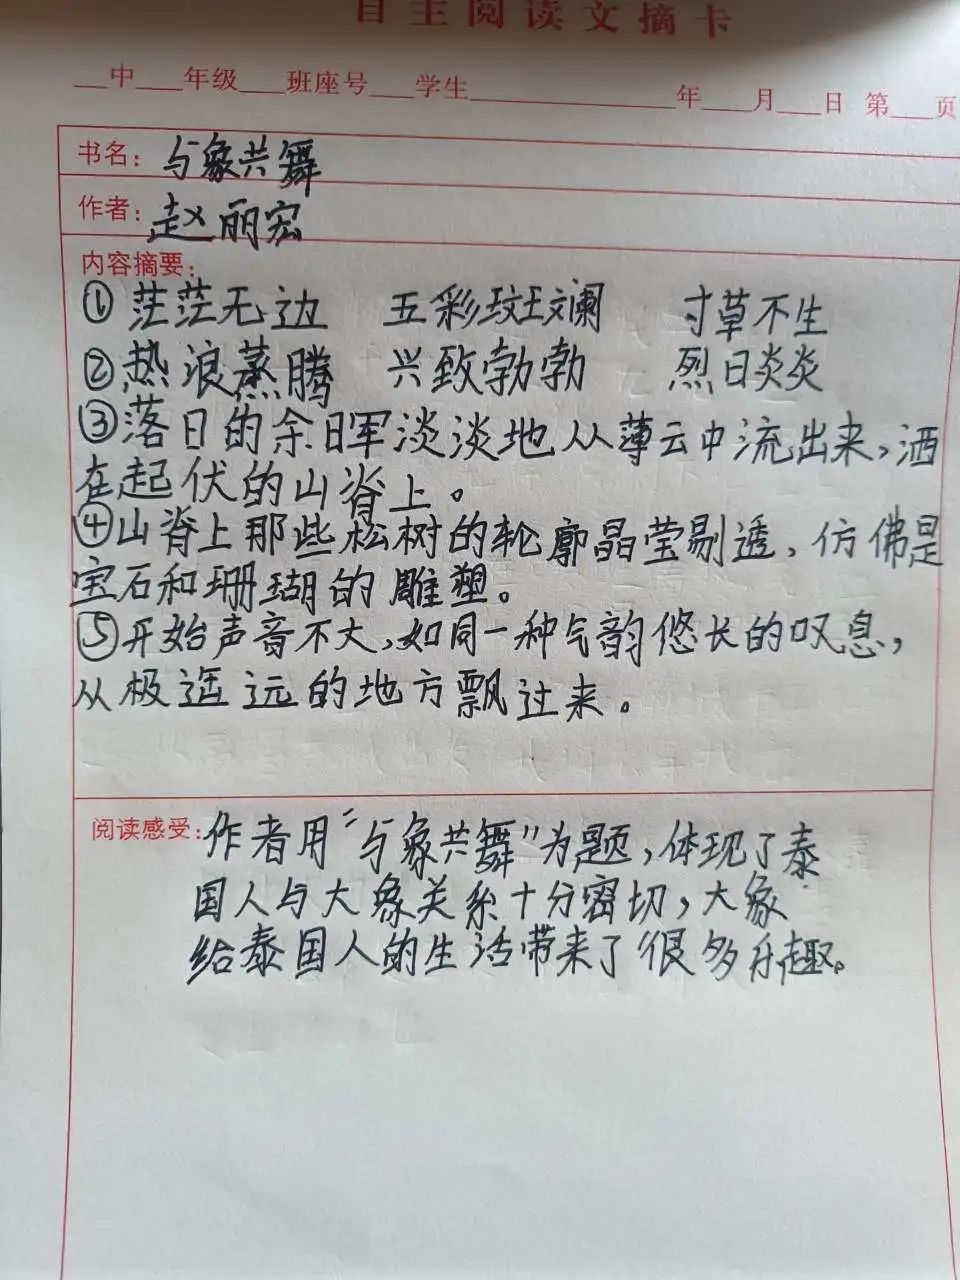 自主阅读文摘卡
__中___年级___班座号___学生______________年___月___日 第___页
书名：与象共舞
作者：赵丽宏
内容摘要：
①茫茫无边 五彩斑斓 寸草不生
②热浪蒸腾 兴致勃勃 烈日炎炎
③落日的余晖淡淡地从薄云中流出来，洒
在起伏的山脊上。
④山脊上那些松树的轮廓晶莹剔透，仿佛是
宝石和珊瑚的雕塑。
⑤开始声音不大，如同一种气韵悠长的叹息，
从极遥远的地方飘过来。
阅读感受：作者用“与象共舞”为题，体现了泰
国人与大象关系十分密切，大象
给泰国人的生活带来了很多乐趣。